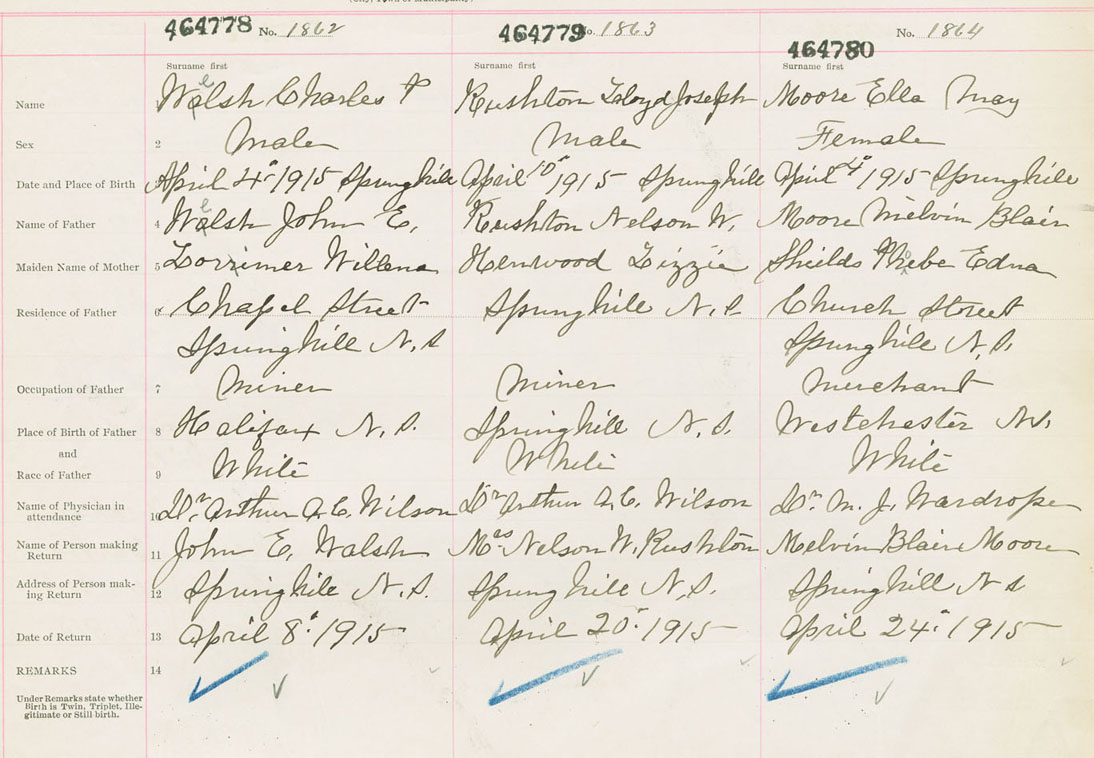 464778 No. 1862
464779 No. 1863
464780 No. 1864
Surname first Surname first Surname first
Name Walsh Charles P Rushton Floyd Joseph Moore Ella May
Sex 2 Male Male Female
Date and Place of Birth April 4" 1915 Springhill April 10" 1915 Springhill April 4" 1915 Springhill
Name of Father 4 Walsh John E, Rushton Nelson W. Moore Melvin Blair
Maiden Name of Mother 5 Lorrimer Willena Henwood Lizzie Shields Phebe Edna
Residence of Father 6 Chapel Street Springhill N.S Church Street
Springhill N.S Springhill N.S.
Occupation of Father 7 Miner Miner Merchant
Place of Birth of Father 8 Halifax N.S. Springhill N.S. Westchester N.S.
and
Race of Father 9 White White White
Name of Physician in attendance 10 Dr. Arthur A.C. Wilson Dr Arthur A.C. Wilson Dr. M. J. Wardrope
Name of Person making Return 11 John E. Walsh Mrs Nelson W. Rushton Melvin Blair Moore
Address of Person mak-ing Return 12 Springhill N.S. Springhill N.S. Springhill N S
Date of Return 13 April 8" 1915 April 20" 1915 April 24" 1915
REMARKS 14
Under Remarks state whether
Birth is Twin, Triplet, Ille-
gitimate or Still birth.